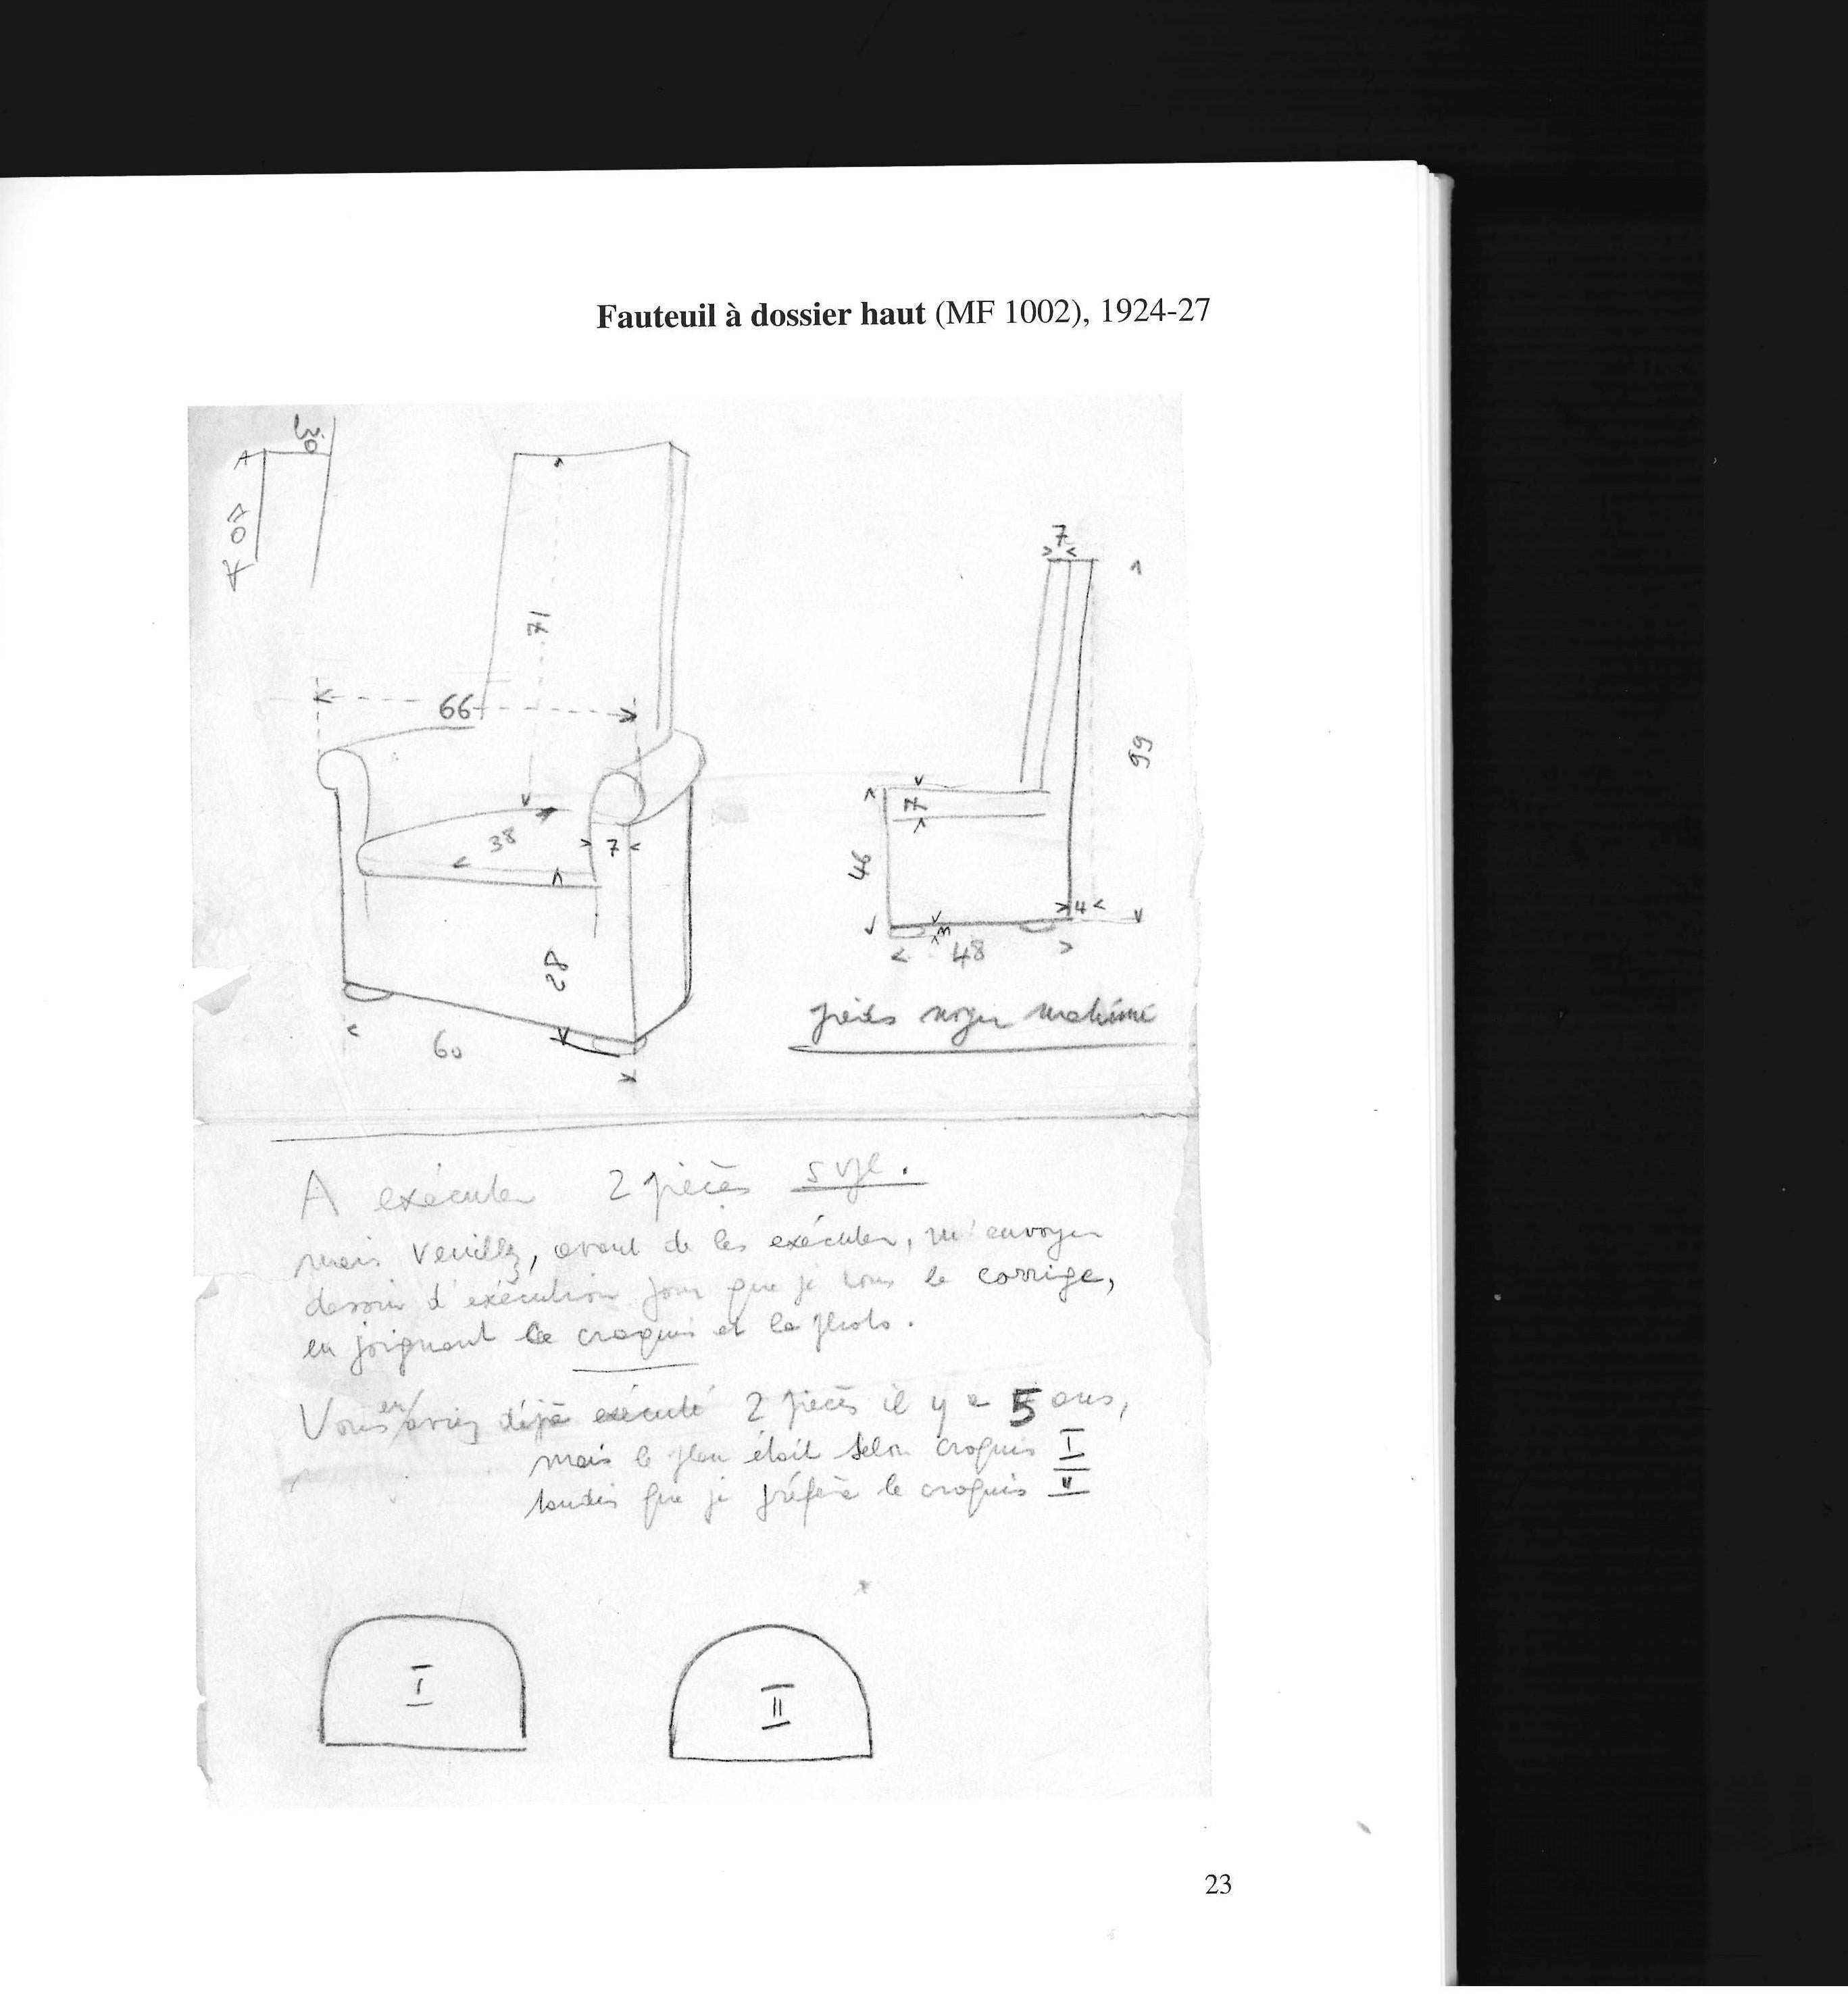 Fauteuil à dossier haut (MF 1002), 1924-27
30
40
71
66
38
7
28
60
7
99
7
46
4
3
48
pieds noyer
A exécuter 2 pièces svpl.
mais veuillez, avant de les exécuter, m'envoyer
dessin d'exécution pour que je vous le corrige,
en joignant le croquis et la photo.
Vous en aviez déjà exécuté 2 pièces il y a 5 ans,
mais le plan était selon croquis I
tandis que je préfère le croquis II
I
II
23